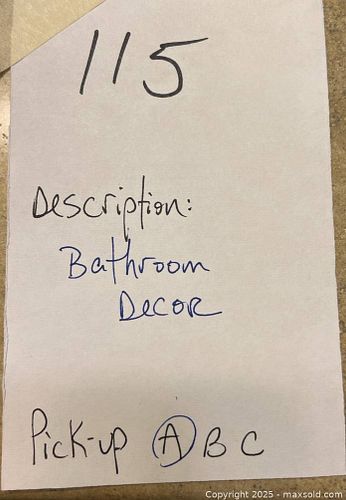 115
Description:
Bathroom
Decor
Pick-up A B C
Copyright 2025 - maxsold.com